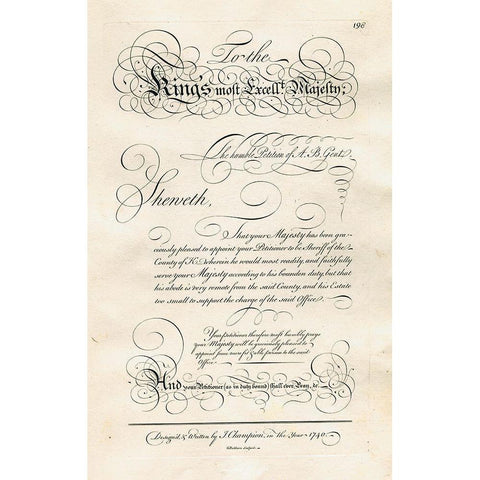 198
To the
King's most Excell.t Majesty;
The humble Petition of A. B. Gent.
Sheweth,
That your Majesty has been gra-
ciously pleased to appoint your Petitioner to be Sheriff of the
County of K. wherein he would most readily, and faithfully
serve your Majesty according to his bounden duty, but that
his abode is very remote from the said County, and his Estate
too small to support the charge of the said Office.
Your petitioner therefore most humbly prays
your Majesty will be graciously pleased to
appoint some more fit & able person to the said
Office.
And your Petitioner (as in duty bound) shall ever Pray, &c.
Design'd & Written by J. Champion, in the Year 1740.